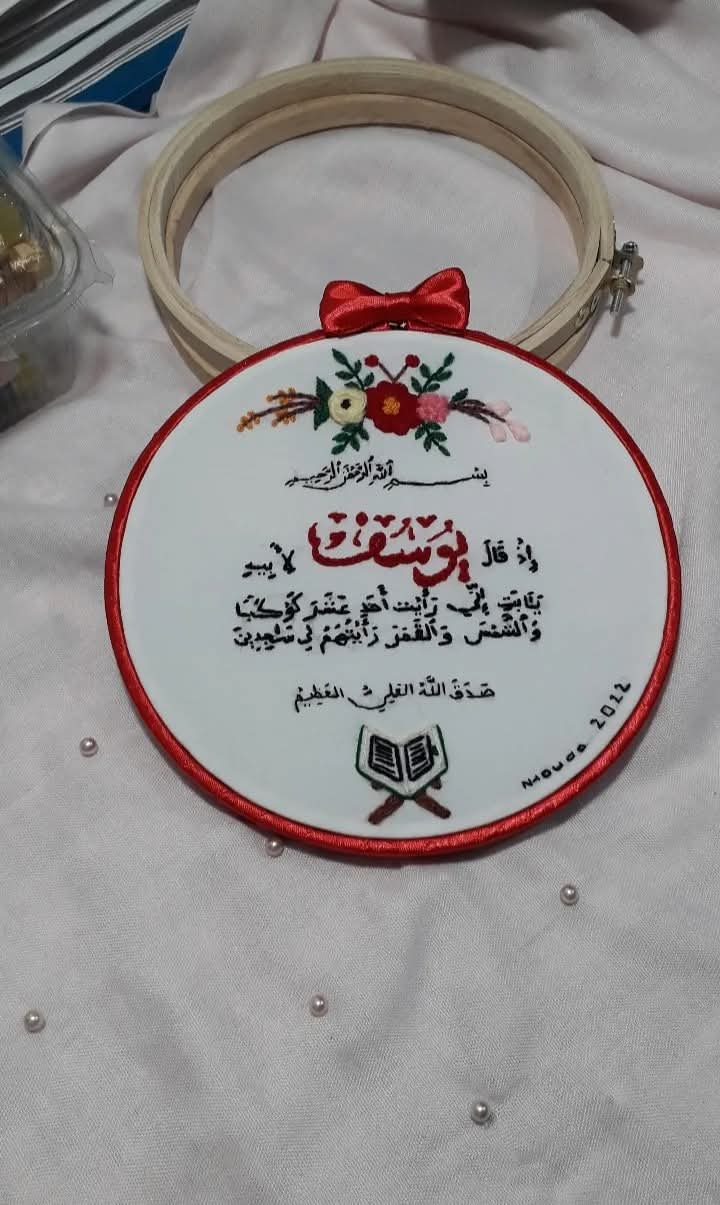 بِسْمِ ٱللَّهِ ٱلرَّحْمَٰنِ ٱلرَّحِيمِ
إِذْ قَالَ يُوسُفُ لِأَبِيهِ
يَٰٓأَبَتِ إِنِّي رَأَيْتُ أَحَدَ عَشَرَ كَوْكَبًا
وَٱلشَّمْسَ وَٱلْقَمَرَ رَأَيْتُهُمْ لِي سَٰجِدِينَ
صَدَقَ اللَّهُ العَلِيُّ العَظِيمُ
2022